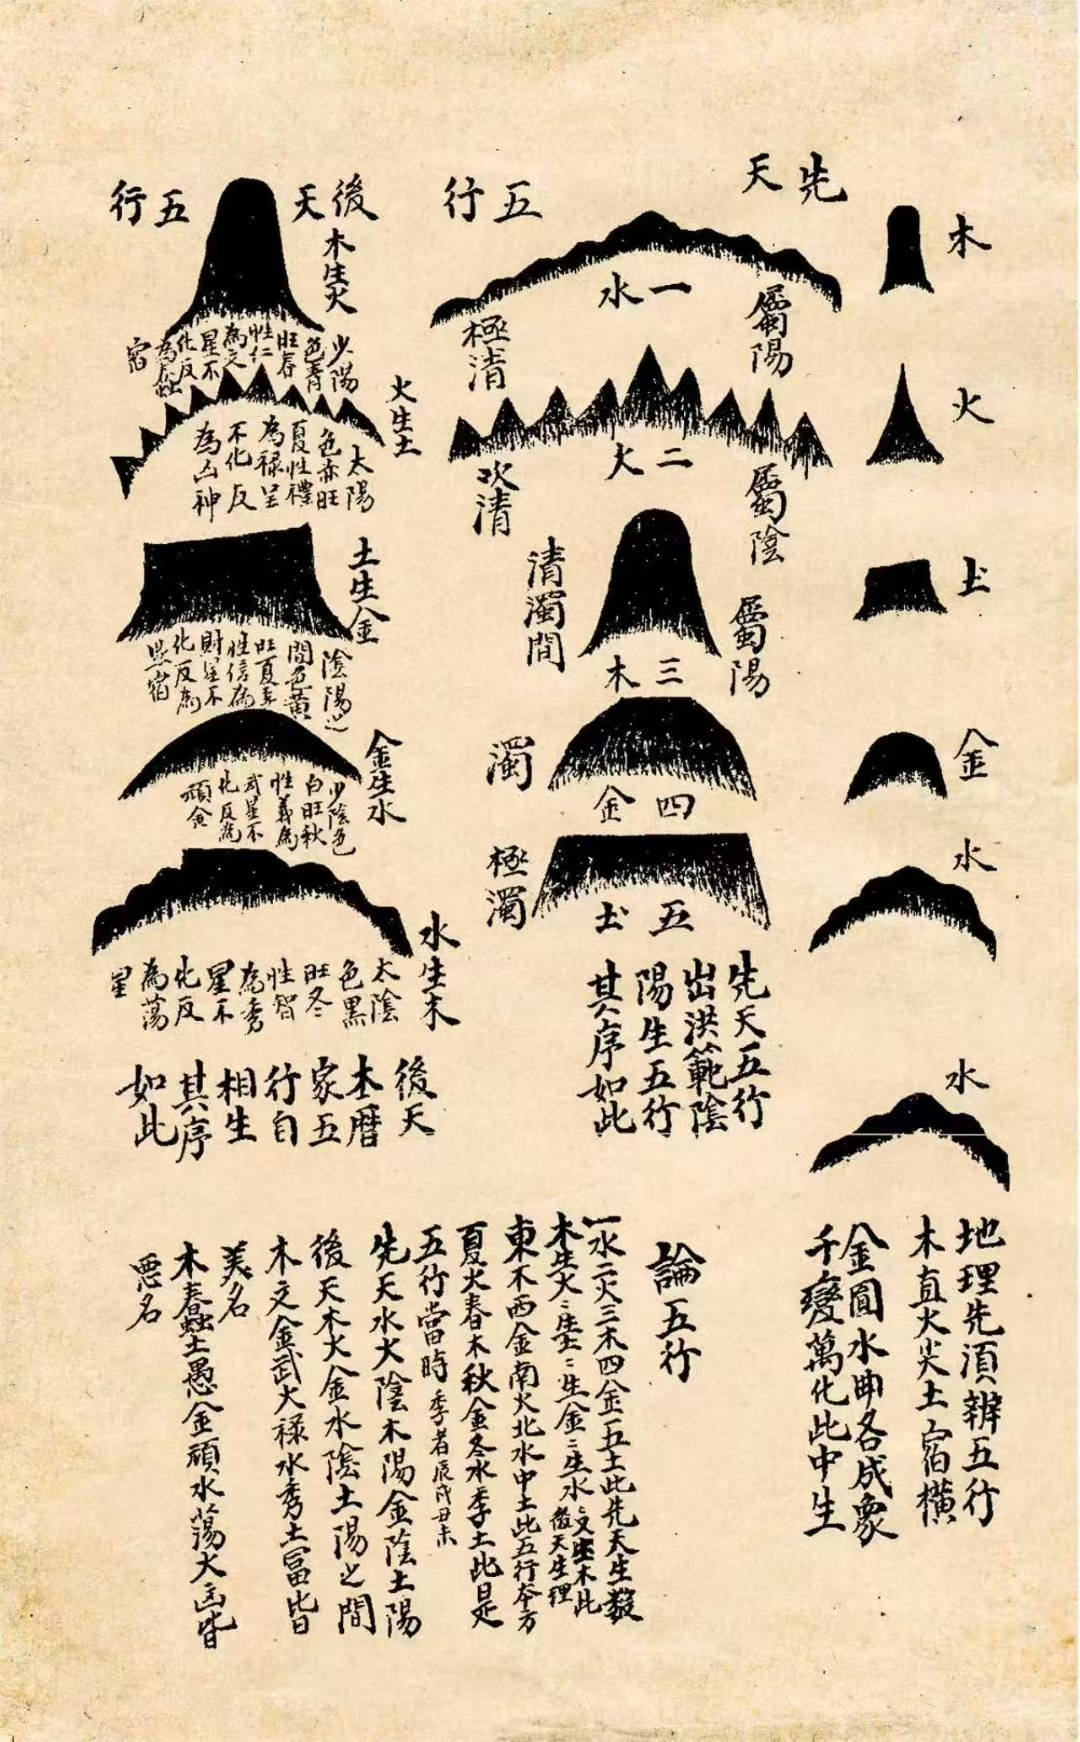 木
火
圡
金
水
水
地理先湏辨五行
木直火尖土宿橫
金圓水曲各成象
千變萬化此中生
先天
五行
一水
屬陽
極清
二火
屬陰
次清
三木
屬陽
清濁間
四金
濁
五圡
極濁
先天五行
出洪範陰
陽生五行
其序如此
後天
五行
木生火
少陽
色青
旺春
性仁
為文
星不
化反
為蠢
宿
火生土
太陽
色赤旺
夏性禮
為祿星
不化反
為凶神
土生金
陰陽之
間色黃
旺夏季
性信為
財星不
化反為
愚宿
金生水
少陰色
白旺秋
性義為
武星不
化反為
頑金
水生木
太陰
色黑
旺冬
性智
為秀
星不
化反
為蕩
星
後天
本曆
家五
行自
相生
其序
如此
論五行
一水二火三木四金五土此先天生數
木生火火生土土生金金生水水又生木此
後天生理
東木西金南火北水中土此五行夲方
夏火春木秋金冬水季土此是
五行當時季者辰戌丑未
先天水火陰木陽金陰土陽
後天木火金水陰土陽之間
木文金武火祿水秀土富皆
美名
木蠢土愚金頑水蕩火凶皆
惡名